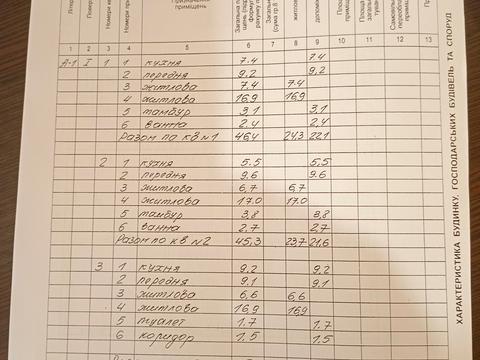 Літера
Призначення приміщень
1 2 3 4 5 6 7 8 9 10 11 12 13
А-1 I 1 1 кухня 7.4 7.4
2 передня 9.2 9.2
3 житлова 7.4 7.4
4 житлова 16,9 16,9
5 тамбур 3,1 3,1
6 ванна 2.4 2.4
Разом по кв №1 46,4 24,3 22,1
2 1 кухня 5.5 5,5
2 передня 9.6 9.6
3 житлова 6,7 6,7
4 житлова 17.0 17.0
5 тамбур 3,8 3,8
6 ванна 2.7 2,7
Разом по кв №2 45,3 23,7 21,6
3 1 кухня 9.2 9.2
2 передня 9.1 9.1
3 житлова 6,6 6,6
4 житлова 16,9 16,9
5 туалет 1.7 1.7
6 коридор 1.5 1.5
ХАРАКТЕРИСТИКА БУДИНКУ, ГОСПОДАРСЬКИХ БУДІВЕЛЬ ТА СПОРУД